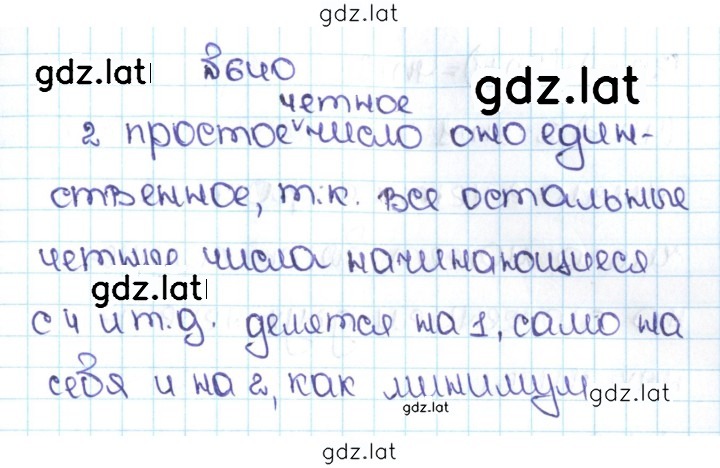 gdz.lat
gdz.lat №640 gdz.lat
четное
2 простое ᵛ число оно един-
ственное, т.к. все остальные
четные числа начинающиеся
gdz.lat
с 4 и т.д. делятся на 1, само на
себя и на 2, как минимум gdz.lat
gdz.lat
gdz.lat